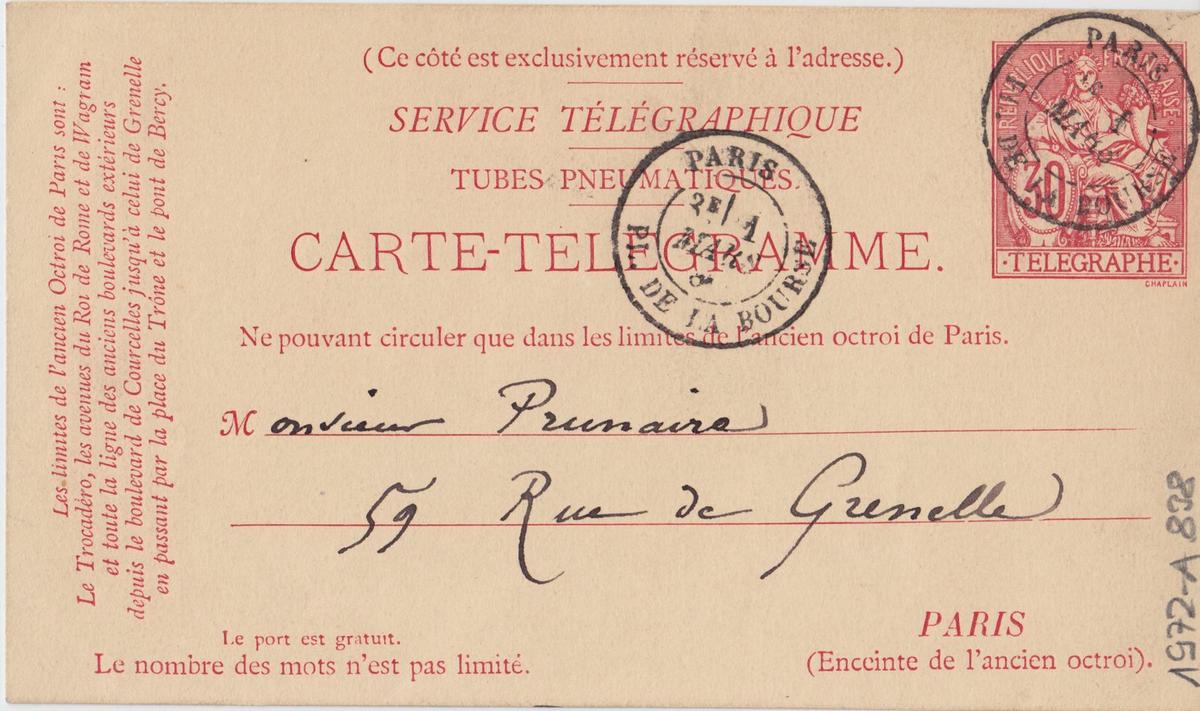 (Ce côté est exclusivement réservé à l'adresse.)
SERVICE TÉLÉGRAPHIQUE
TUBES PNEUMATIQUES.
CARTE-TÉLÉGRAMME.
Ne pouvant circuler que dans les limites de l'ancien octroi de Paris.
Monsieur Prunaire
59 Rue de Grenelle
PARIS
(Enceinte de l'ancien octroi).
Le port est gratuit.
Le nombre des mots n'est pas limité.
Les limites de l'ancien Octroi de Paris sont :
Le Trocadéro, les avenues du Roi de Rome et de Wagram
et toute la ligne des anciens boulevards extérieurs
depuis le boulevard de Courcelles jusqu'à celui de Grenelle
en passant par la place du Trône et le pont de Bercy.
PARIS
2E 1
MARS
PL. DE LA BOURSE
REPUBLIQUE FRANÇAISE
30
·TELEGRAPHE·
CHAPLAIN
PARIS
1
MARS
PL. DE LA BOURSE
1972-A 898